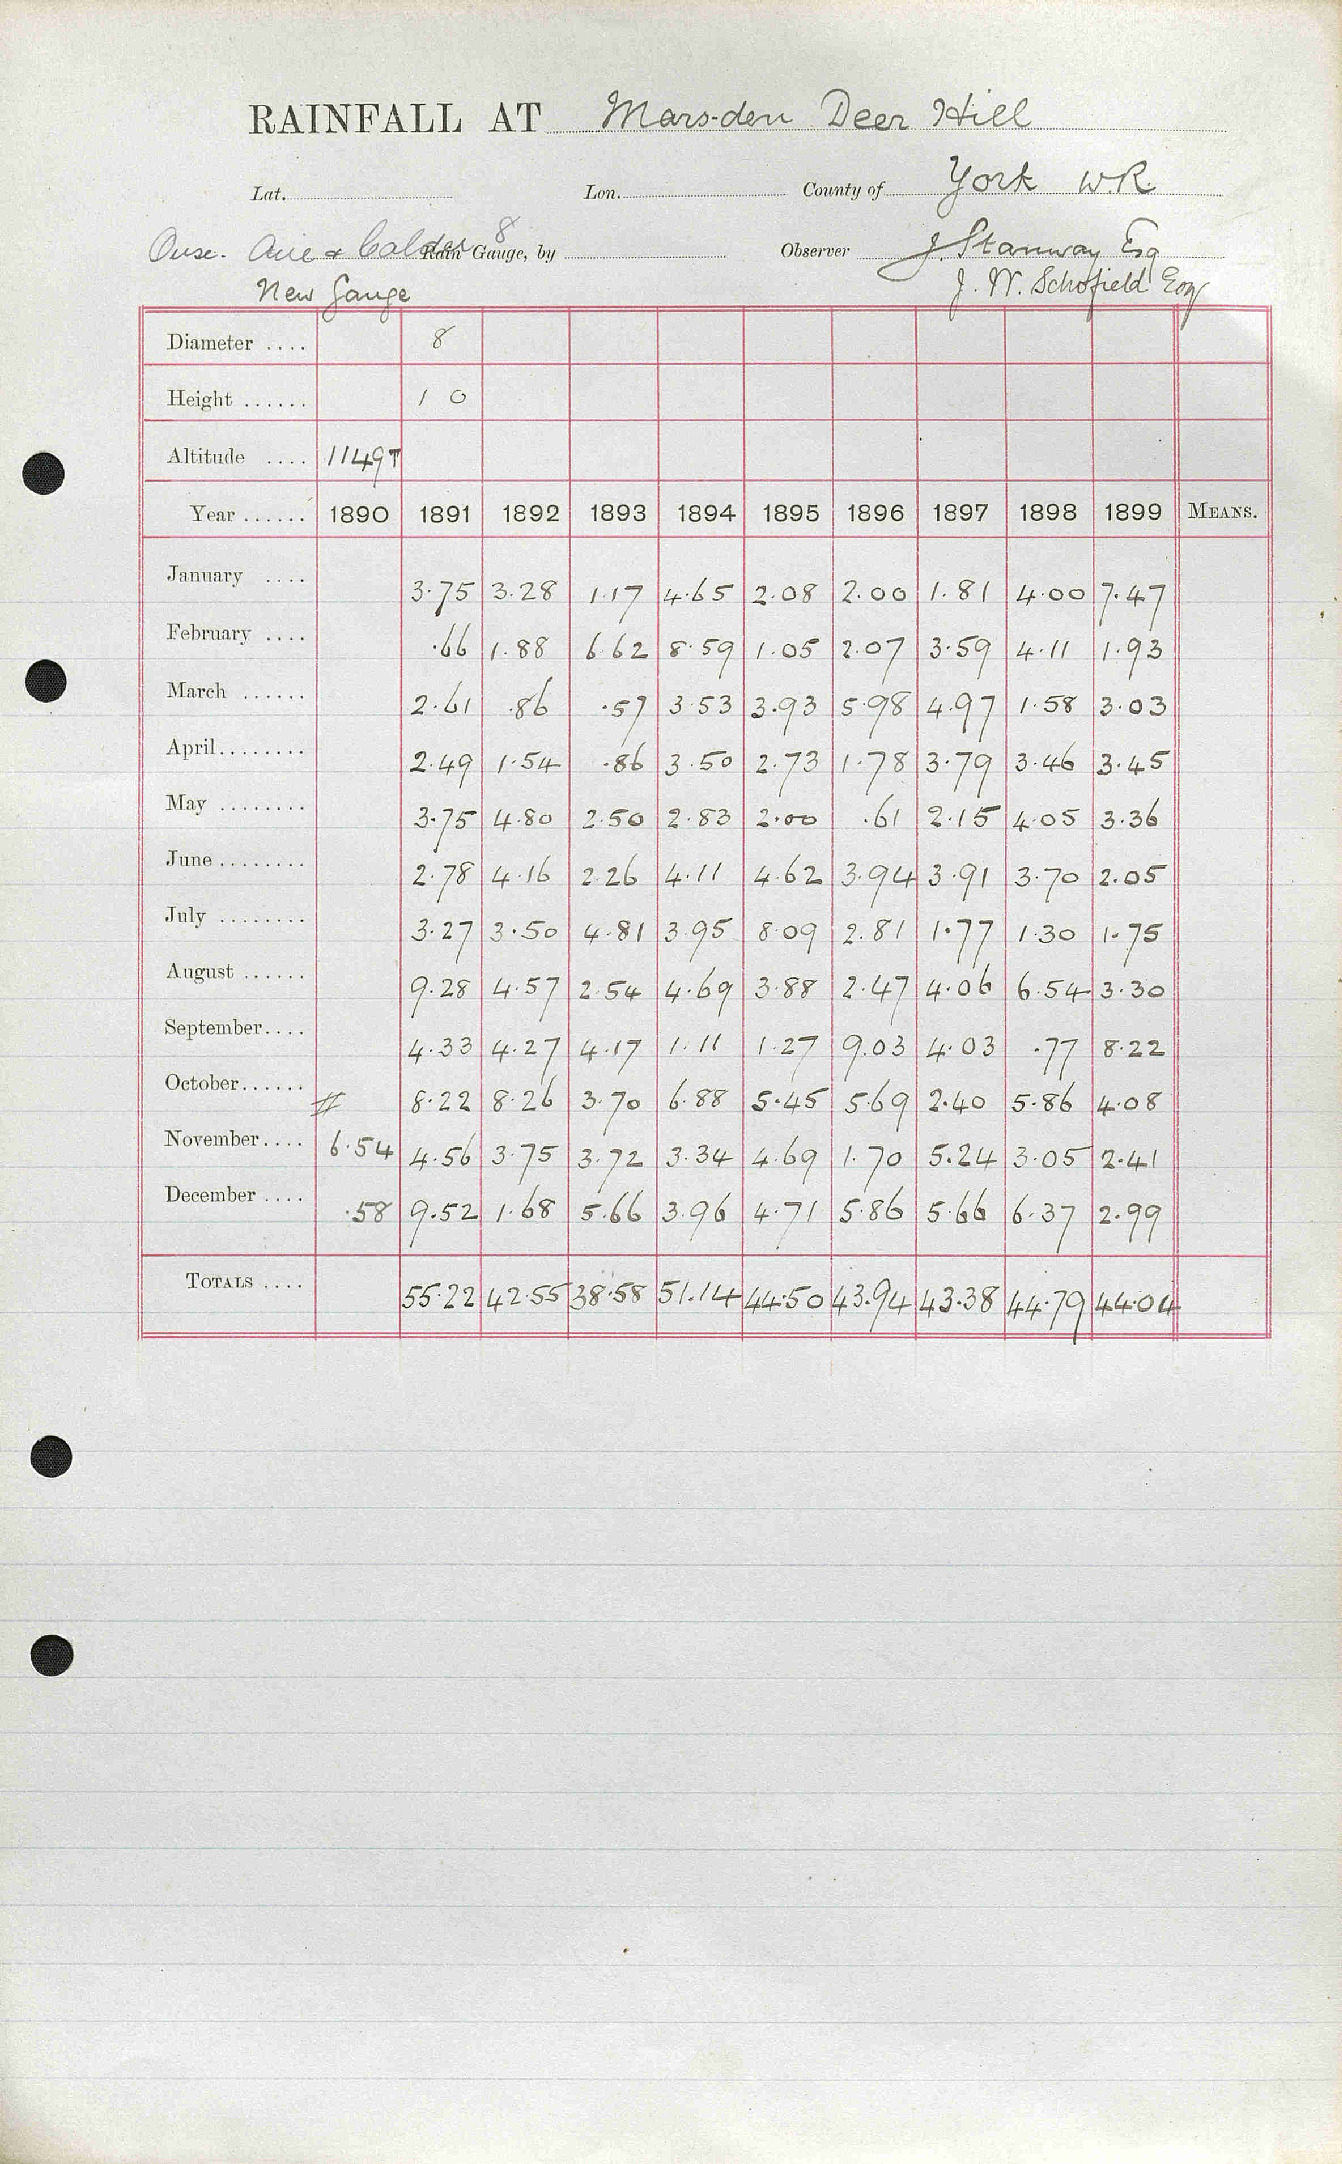 RAINFALL AT Marsden Deer Hill
Lat. Lon. County of York W.R.
Ouse. Aire & Calder 8 Rain Gauge, by Observer J. Stanway Esq
New Gauge J. W. Schofield Esq
Diameter .... 8
Height ...... 1 0
Altitude .... 1149T
Year ...... 1890 1891 1892 1893 1894 1895 1896 1897 1898 1899 MEANS.
January .... 3.75 3.28 1.17 4.65 2.08 2.00 1.81 4.00 7.47
February .... .66 1.88 6.62 8.59 1.05 2.07 3.59 4.11 1.93
March ...... 2.61 .86 .57 3.53 3.93 5.98 4.97 1.58 3.03
April........ 2.49 1.54 .86 3.50 2.73 1.78 3.79 3.46 3.45
May ........ 3.75 4.80 2.50 2.83 2.00 .61 2.15 4.05 3.36
June ........ 2.78 4.16 2.26 4.11 4.62 3.94 3.91 3.70 2.05
July ........ 3.27 3.50 4.81 3.95 8.09 2.81 1.77 1.30 1.75
August ...... 9.28 4.57 2.54 4.69 3.88 2.47 4.06 6.54 3.30
September.... 4.33 4.27 4.17 1.11 1.27 9.03 4.03 .77 8.22
October...... # 8.22 8.26 3.70 6.88 5.45 5.69 2.40 5.86 4.08
November.... 6.54 4.56 3.75 3.72 3.34 4.69 1.70 5.24 3.05 2.41
December .... .58 9.52 1.68 5.66 3.96 4.71 5.86 5.66 6.37 2.99
TOTALS .... 55.22 42.55 38.58 51.14 44.50 43.94 43.38 44.79 44.04